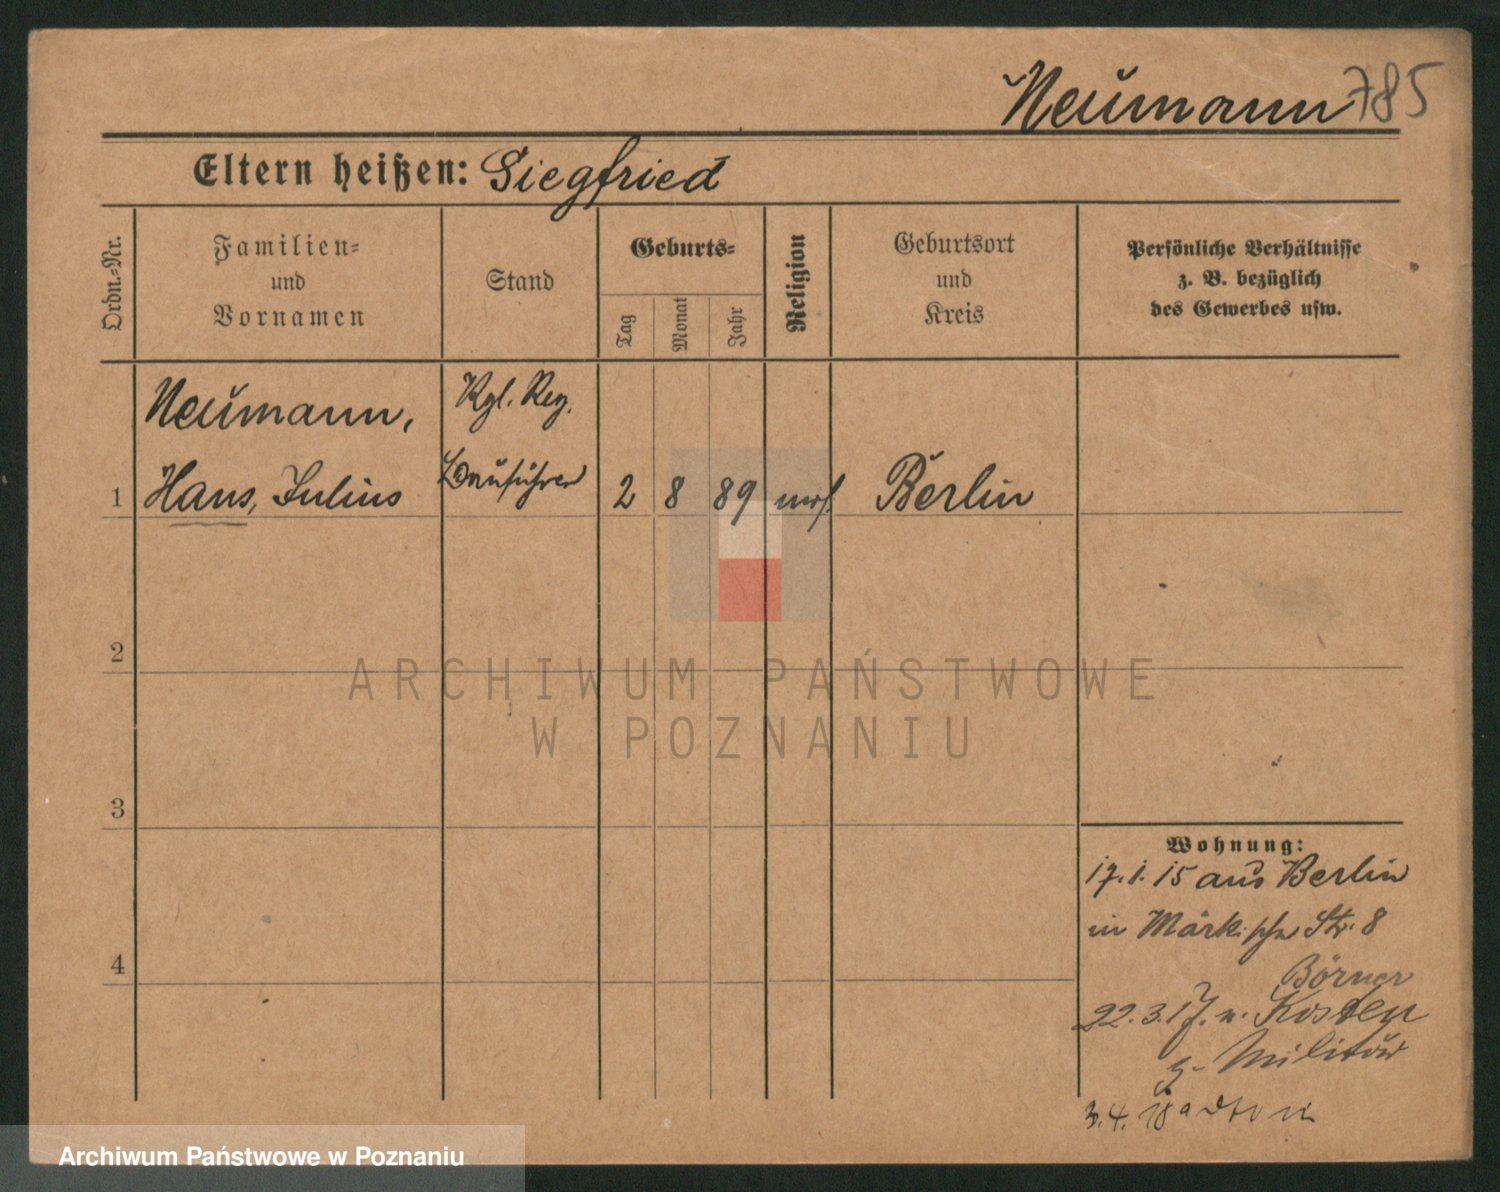 Neumann 785
Eltern heißen: Siegfried
Ordn.-Nr.
Familien-
und
Vornamen
Stand
Geburts-
Tag
Monat
Jahr
Religion
Geburtsort
und
Kreis
Persönliche Verhältnisse
z. B. bezüglich
des Gewerbes usw.
Neumann, Kgl. Reg.
1 Hans, Julius Bauführer 2 8 89 mos. Berlin
2
3
4
Wohnung:
17.1.15 aus Berlin
in Märkische Str. 8
Börner
22.3.17. n. Kosten
z. Militär
3.4.18
ARCHIWUM PAŃSTWOWE
W POZNANIU
Archiwum Państwowe w Poznaniu